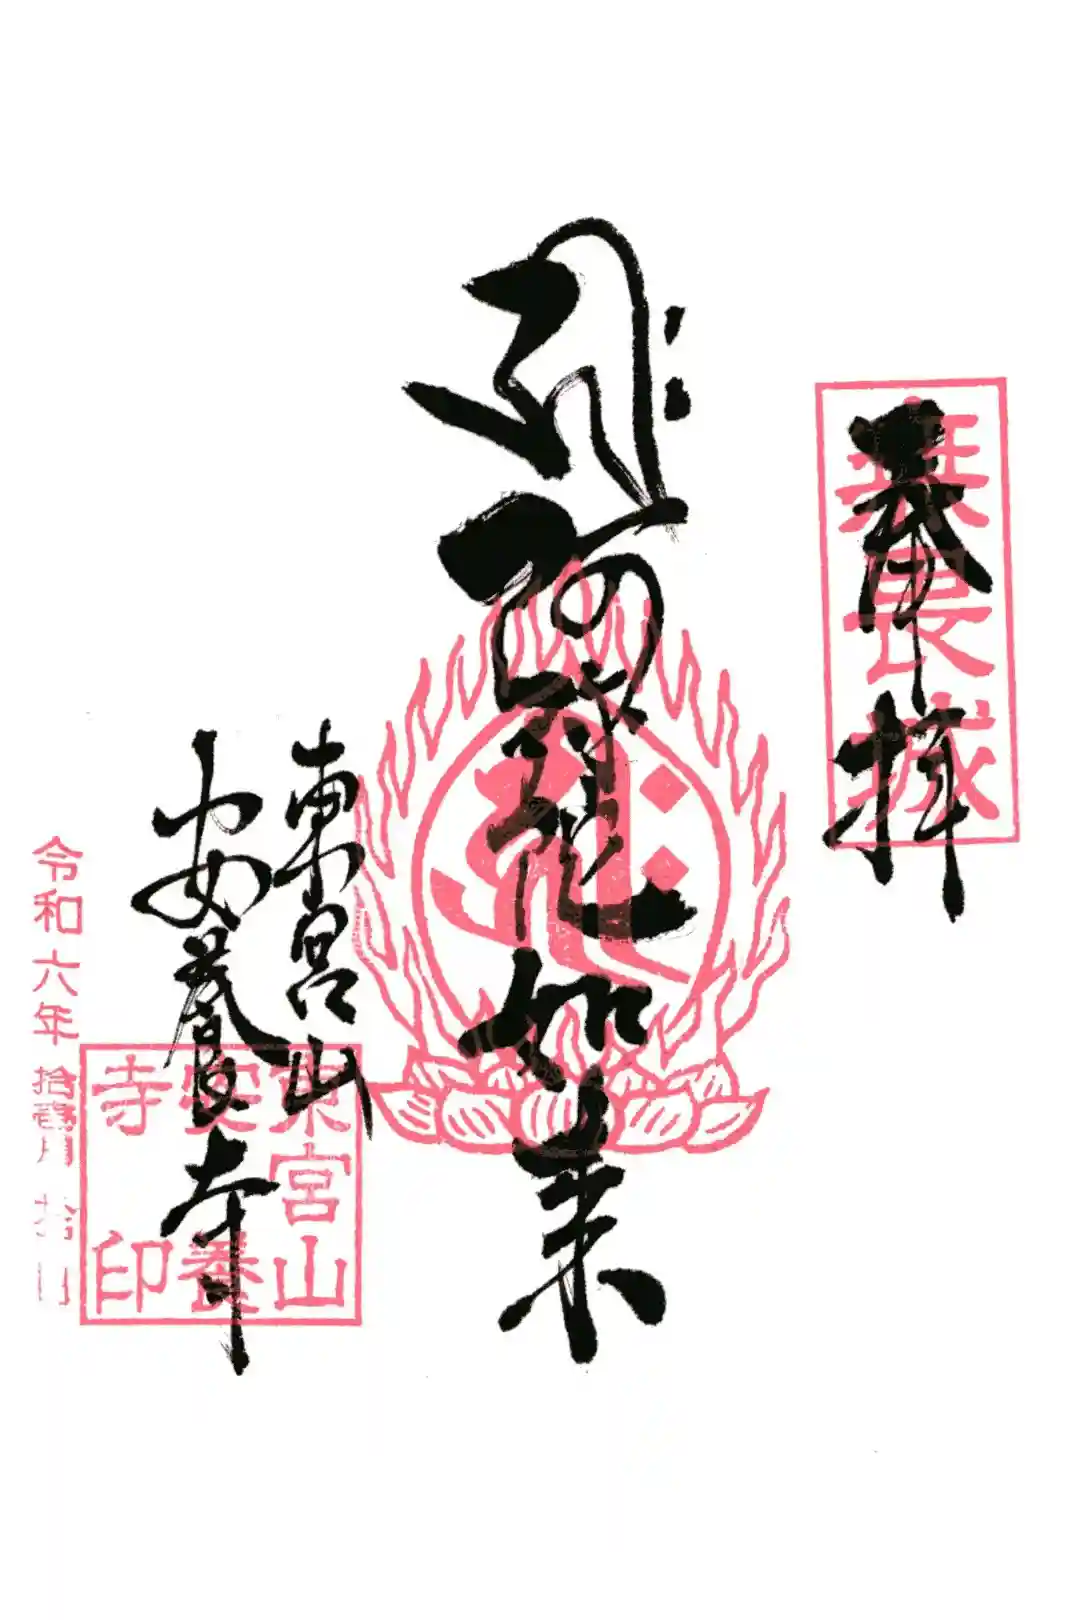 奉拝
無畏城
𑖮𑖿𑖨𑖱𑖾
阿弥陀如来
𑖮𑖿𑖨𑖱𑖾
東宮山
安養寺
東宮山
安養
寺印
令和六年 拾壱月 拾日